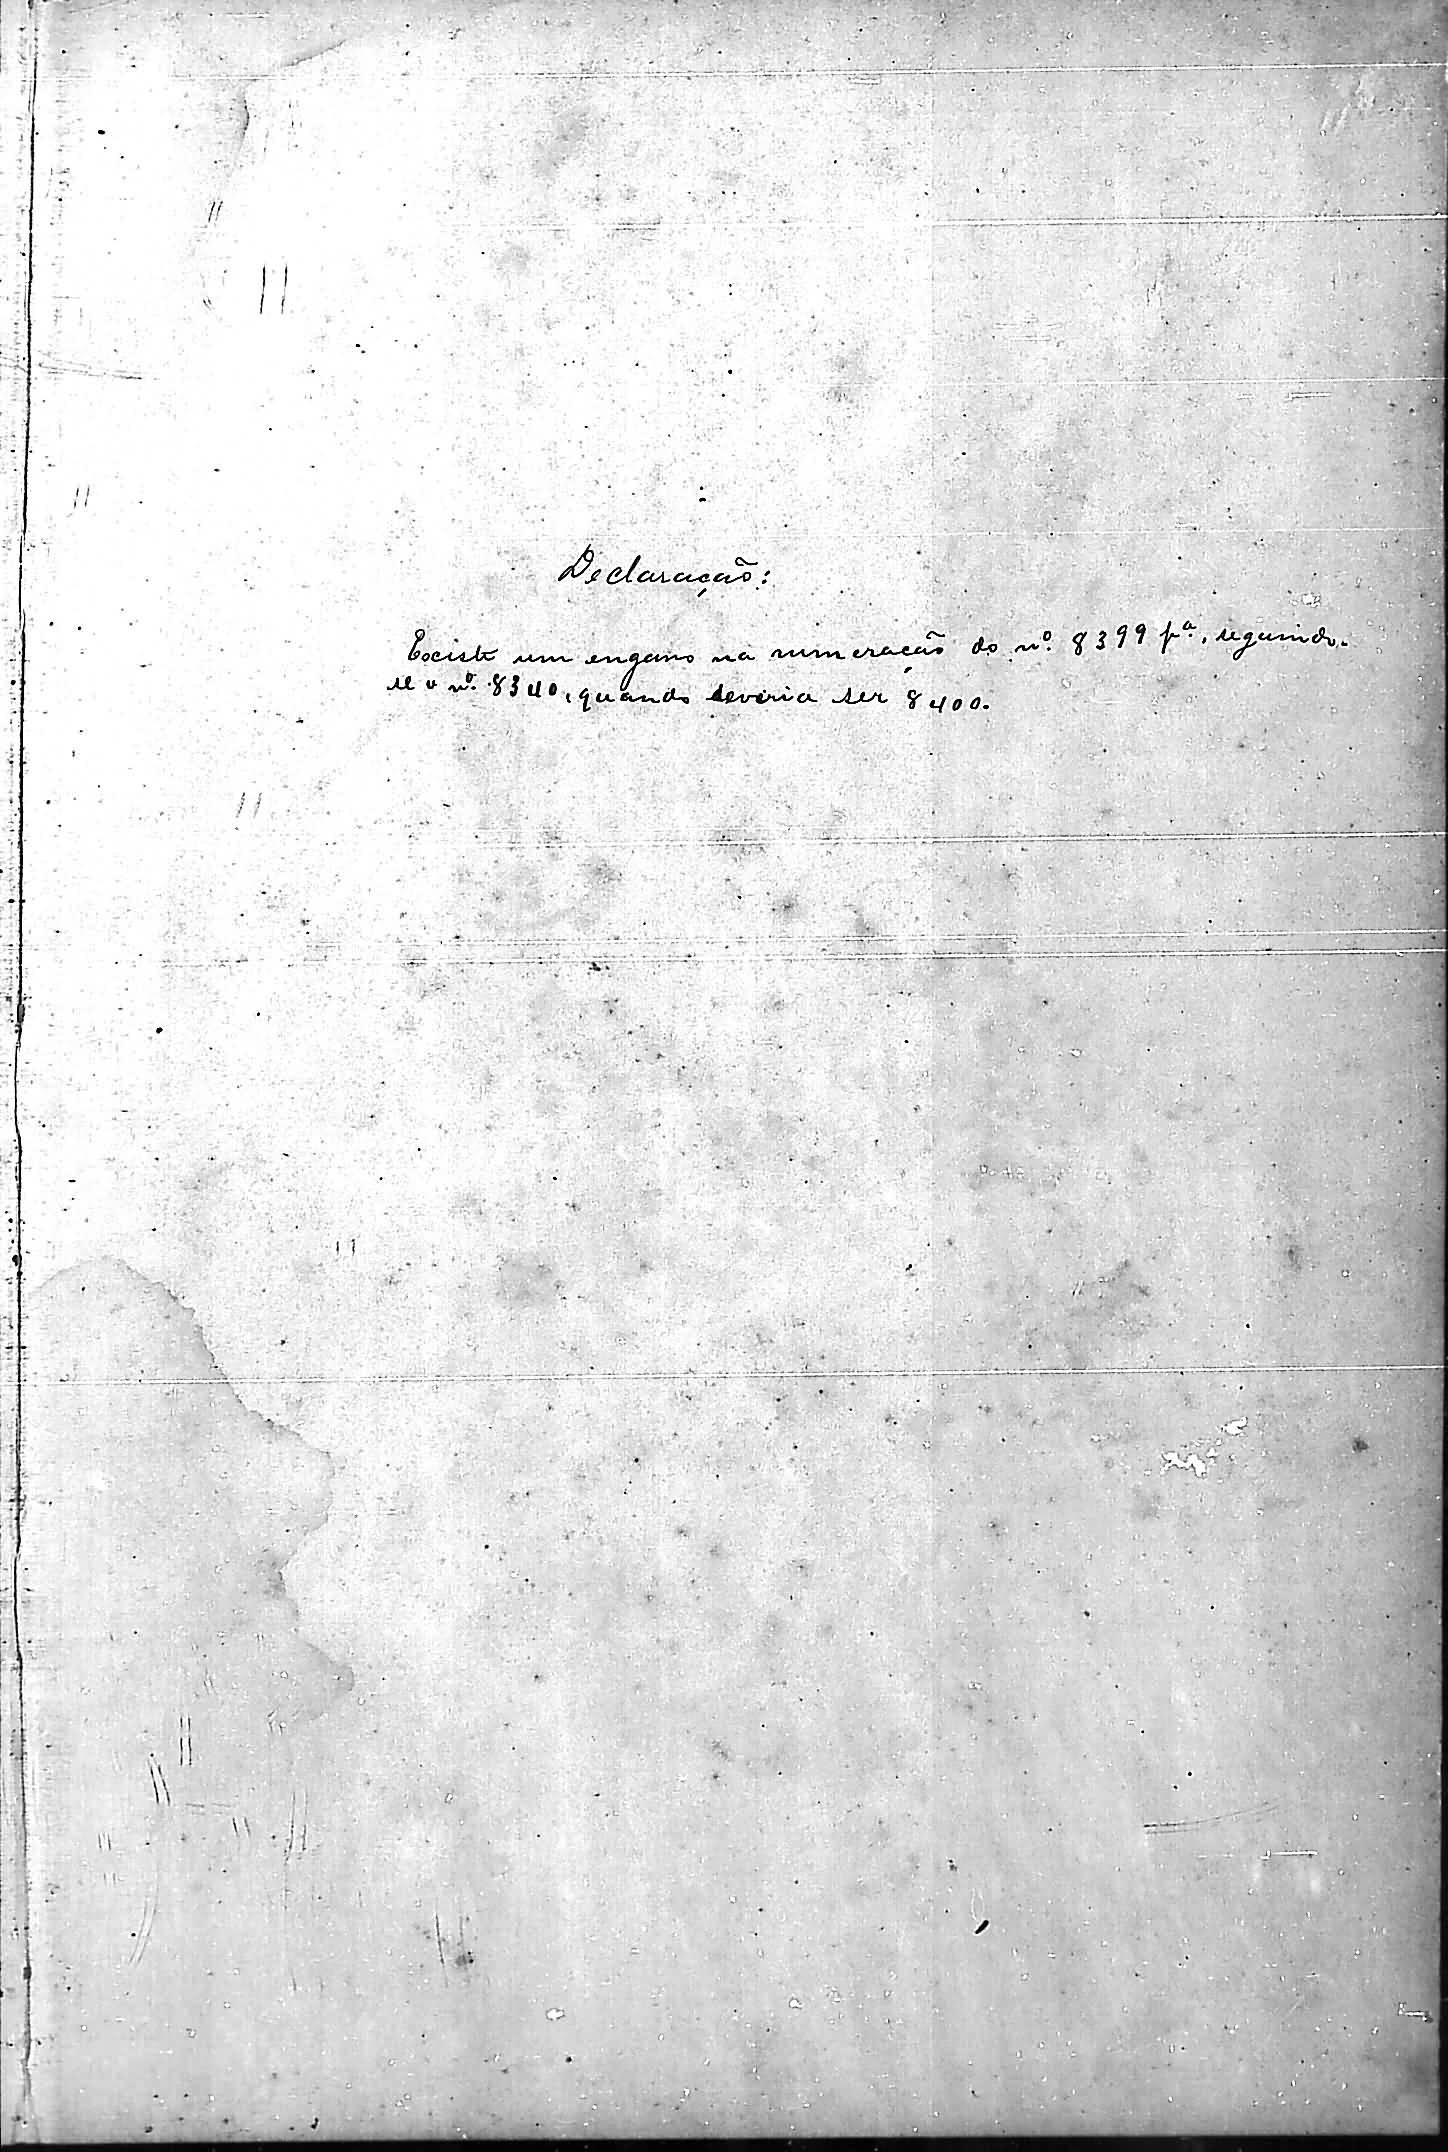 Declaração:
Existe um engano na numeração do nº. 8399 pª., seguindo-
se o nº. 8340, quando deveria ser 8400.